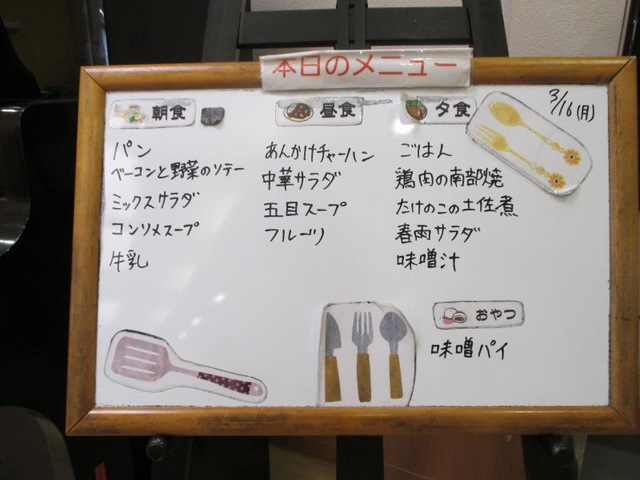 本日のメニュー
3/16(月)
朝食
パン
ベーコンと野菜のソテー
ミックスサラダ
コンソメスープ
牛乳
昼食
あんかけチャーハン
中華サラダ
五目スープ
フルーツ
夕食
ごはん
鶏肉の南部焼
たけのこの土佐煮
春雨サラダ
味噌汁
おやつ
味噌パイ